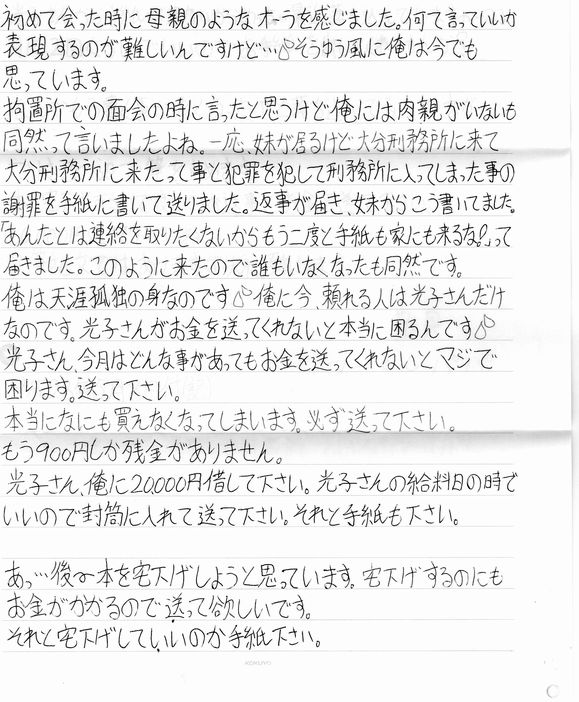 初めて会った時に母親のようなオーラを感じました。何て言っていいか
表現するのが難しいんですけど…そうゆう風に俺は今でも
思っています。
拘置所での面会の時に言ったと思うけど俺には肉親がいないも
同然って言いましたよね。一応、妹が居るけど大分刑務所に来て
大分刑務所に来たって事と犯罪を犯して刑務所に入ってしまった事の
謝罪を手紙に書いて送りました。返事が届き、妹からこう書いてました。
「あんたとは連絡を取りたくないからもう二度と手紙も家にも来るな!」って
届きました。このように来たので誰もいなくなったも同然です。
俺は天涯孤独の身なのです 俺に今、頼れる人は光子さんだけ
なのです。光子さんがお金を送ってくれないと本当に困るんです
光子さん、今月はどんな事があってもお金を送ってくれないとマジで
困ります。送って下さい。
本当になにも買えなくなってしまいます。必ず送って下さい。
もう900円しか残金がありません。
光子さん、俺に20,000円借して下さい。光子さんの給料日の時で
いいので封筒に入れて送って下さい。それと手紙も下さい。
あっ…後本を宅下げしようと思っています。宅下げするのにも
お金がかかるので送って欲しいです。
それと宅下げしていいのか手紙下さい。
KOKUYO
C